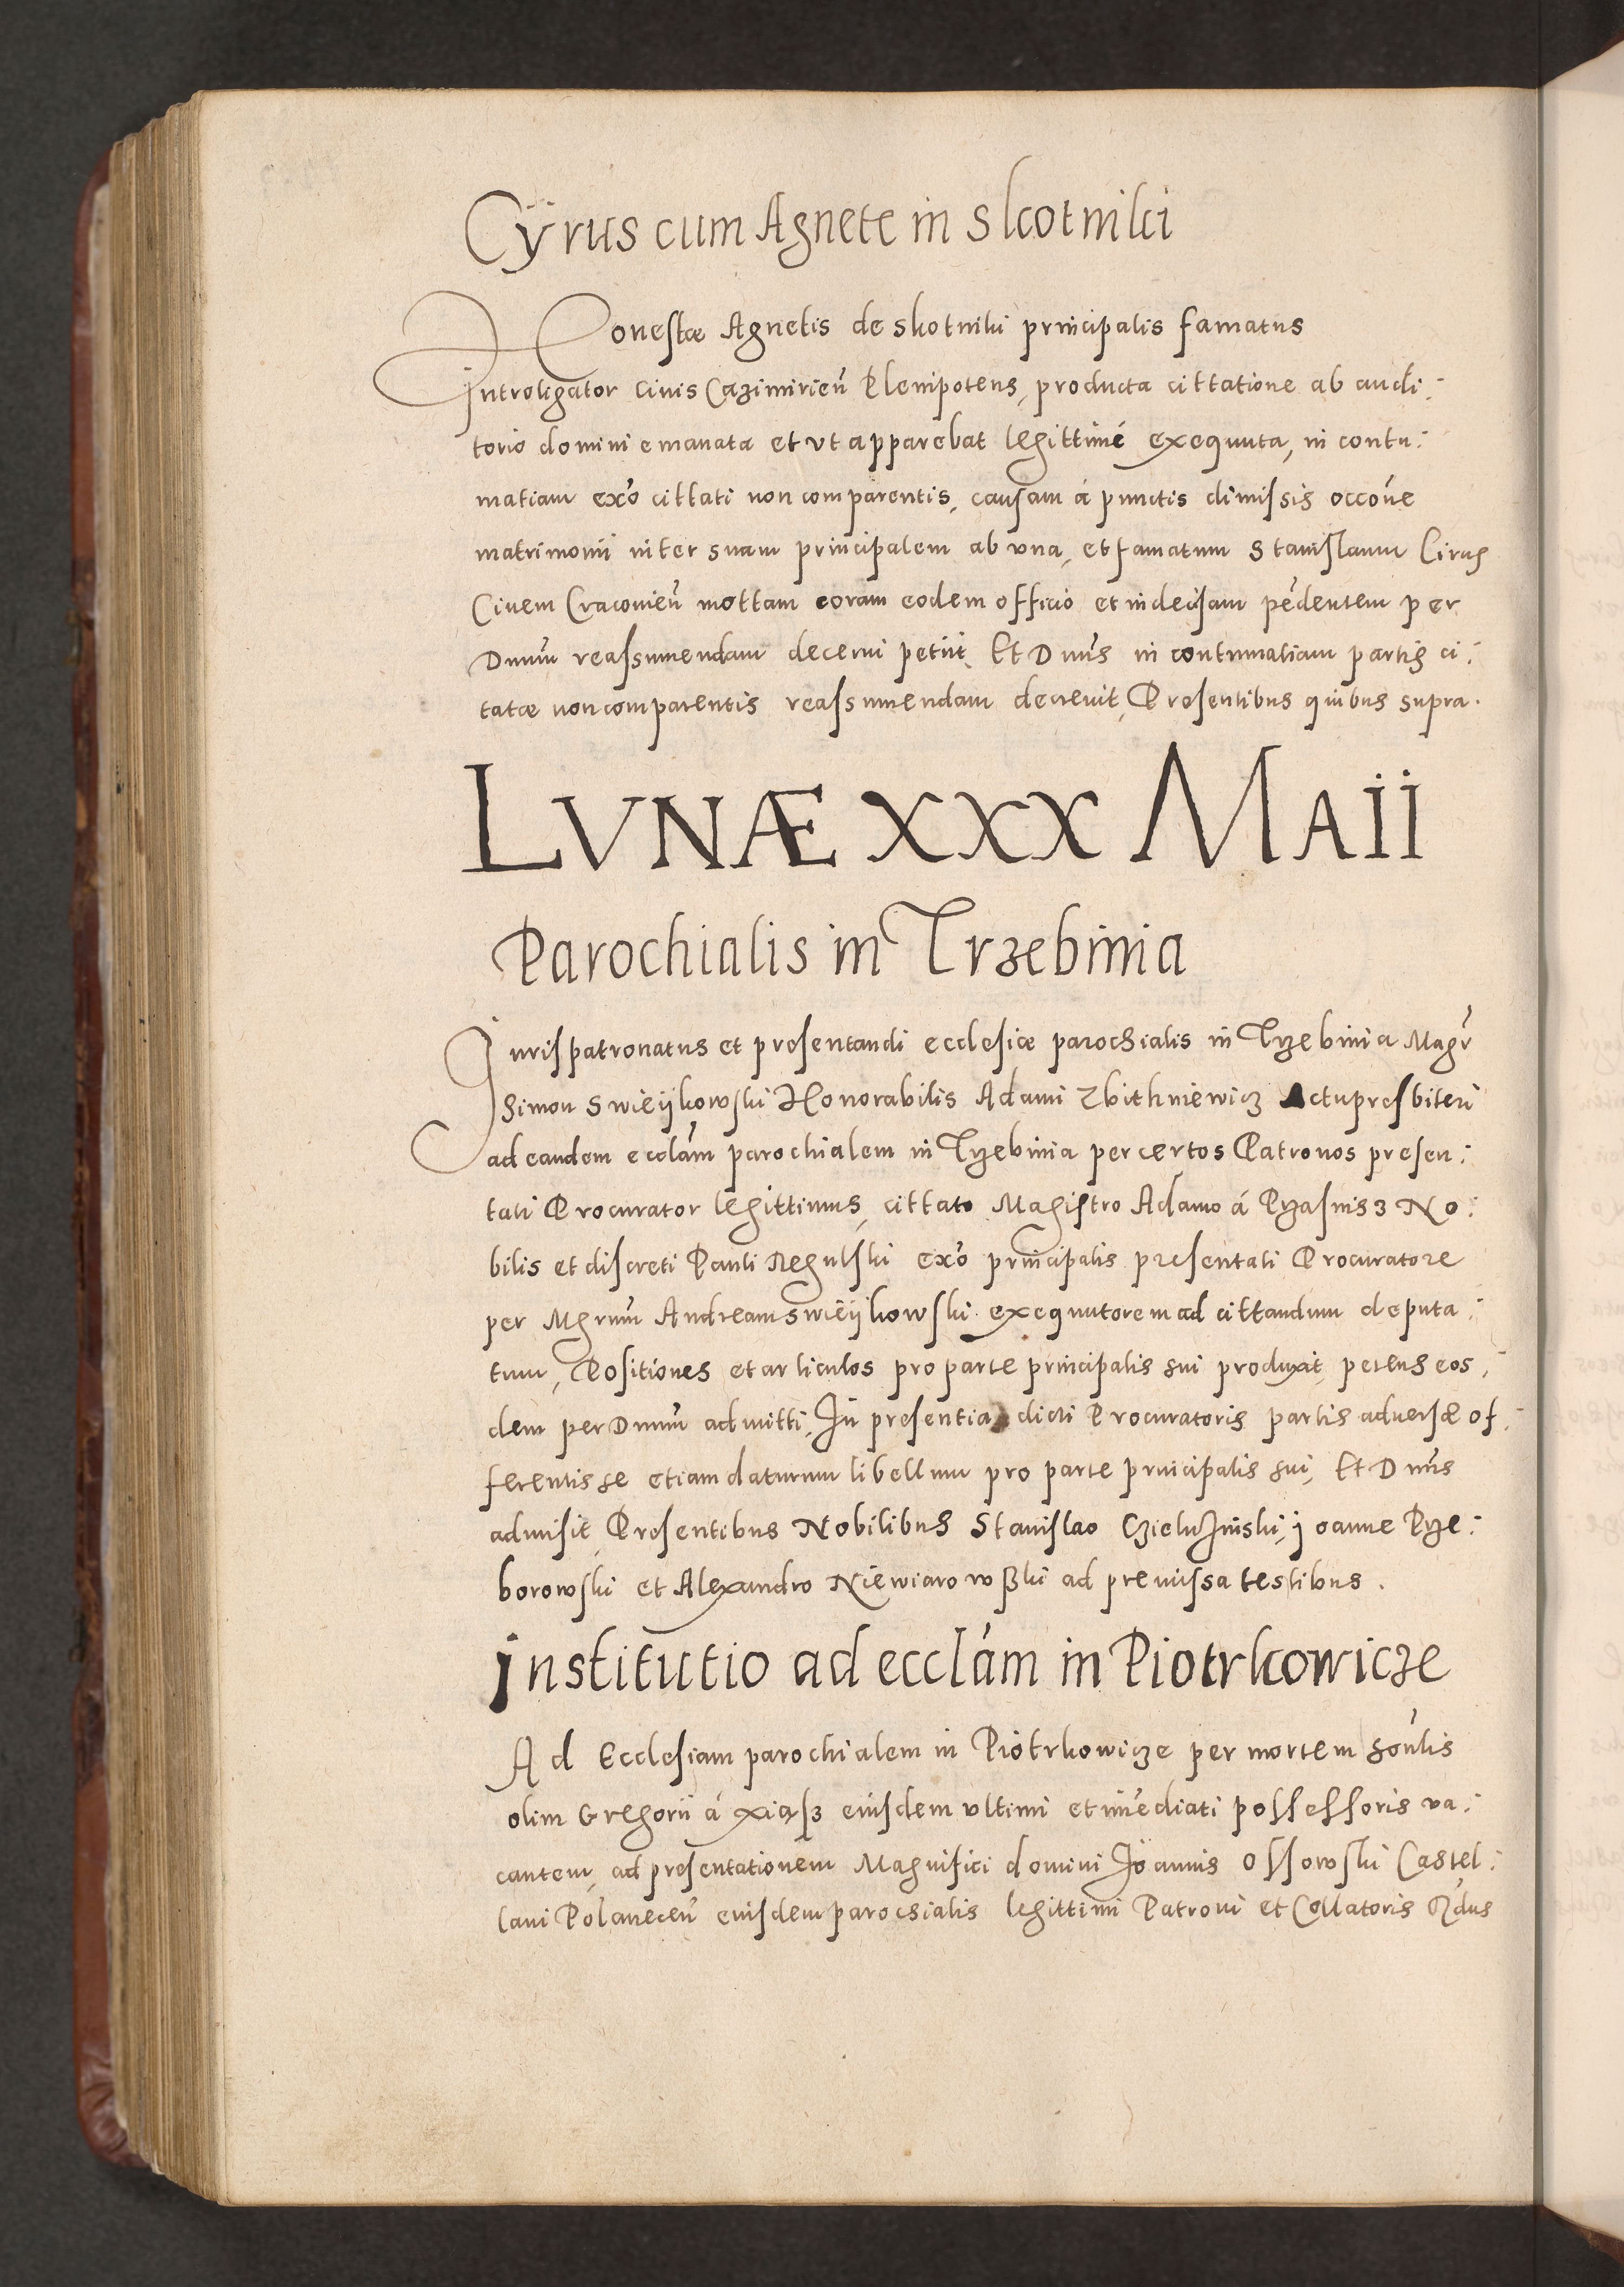 Cÿrus cum Agnete in Skotniki
Honestæ Agnetis de skotniki principalis famatus
Introligator Civis Cazimirieñ Plenipotens, producta cittatione ab audi:
torio domini emanata et vt apparebat legittimé exequuta, in contu:
matiam exõ cittati non comparentis, causam á punctis dimissis occõne
matrimonii inter suam principalem ab vna, et famatum Stanislaum Cirus
Civem Cracovieñ mottam coram eodem officio et indecisam pẽdentem per
Dnum̃ reassumendam decerni petiit, Et Dnus̃ in contumatiam partis ci:
tatæ non comparentis reassumendam decrevit, Presentibus quibus supra.
LVNÆ XXX MAII
Parochialis in Trzebinia
Juris patronatus et presentandi ecclesiæ parochialis in Trzebinia Magr̃
Simon Swieÿkowski Honorabilis Adami Zbithniewicz Actu presbiteri
ad eandem ecclãm parochialem in Trzebinia per certos Patronos presen:
tati Procurator legittimus, cittato Magistro Adamo á Przasnisz No:
bilis et discreti Pauli Regulski exõ principalis presentati Procuratore
per Mgrum̃ Andream swieÿkowski exequutorem ad cittandum deputa:
tum, Positiones et articulos pro parte principalis sui produxit petens eos:
dem per Dnum̃ admitti, In presentia dicti Procuratoris partis adversæ of:
ferentis se etiam daturum libellum pro parte principalis sui, Et Dnus̃
admisit, Presentibus Nobilibus Stanislao Joanne Prze:
borowski et Alexandro Niewiarowski ad premissa testibus.
Institutio ad ecclãm in Piotrkowicze
Ad Ecclesiam parochialem in Piotrkowicze per mortem
olim Gregorii á Xiąsz eiusdem vltimi et iñiediati possessoris va:
cantem, ad presentationem Magnifici domini Joannis Ossowski Castel:
lani Polaneceñ eiusdem parochialis legittimi Patroni et Collatoris Rdus̃